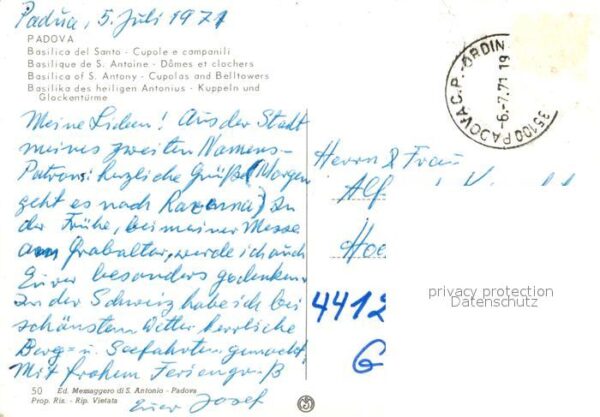 Padua, 5. Juli 1971
PADOVA
Basilica del Santo - Cupole e campanili
Basilique de S. Antoine - Dômes et clochers
Basilica of S. Antony - Cupolas and Belltowers
Basilika des heiligen Antonius - Kuppeln und
Glockentürme
Meine Lieben! Aus der Stadt
meines zweiten Namens-
Patrons herzliche Grüße (Morgen
geht es nach Ravenna) In
der Frühe, bei meiner Messe
am Grabaltar, werde ich auch
Eurer besonders gedenken.
In der Schweiz habe ich bei
schönstem Wetter herrliche
Berg- u. Seefahrten gemacht.
Mit frohem Feriengruß
Euer Josef
50 Ed. Messaggero di S. Antonio - Padova
Prop. Ris. - Rip. Vietata
35100 PADOVA C.P.-ORDIN
-6.-7.71 19
Herrn & Frau
Alf
Hoc
4412
G
privacy protection
Datenschutz